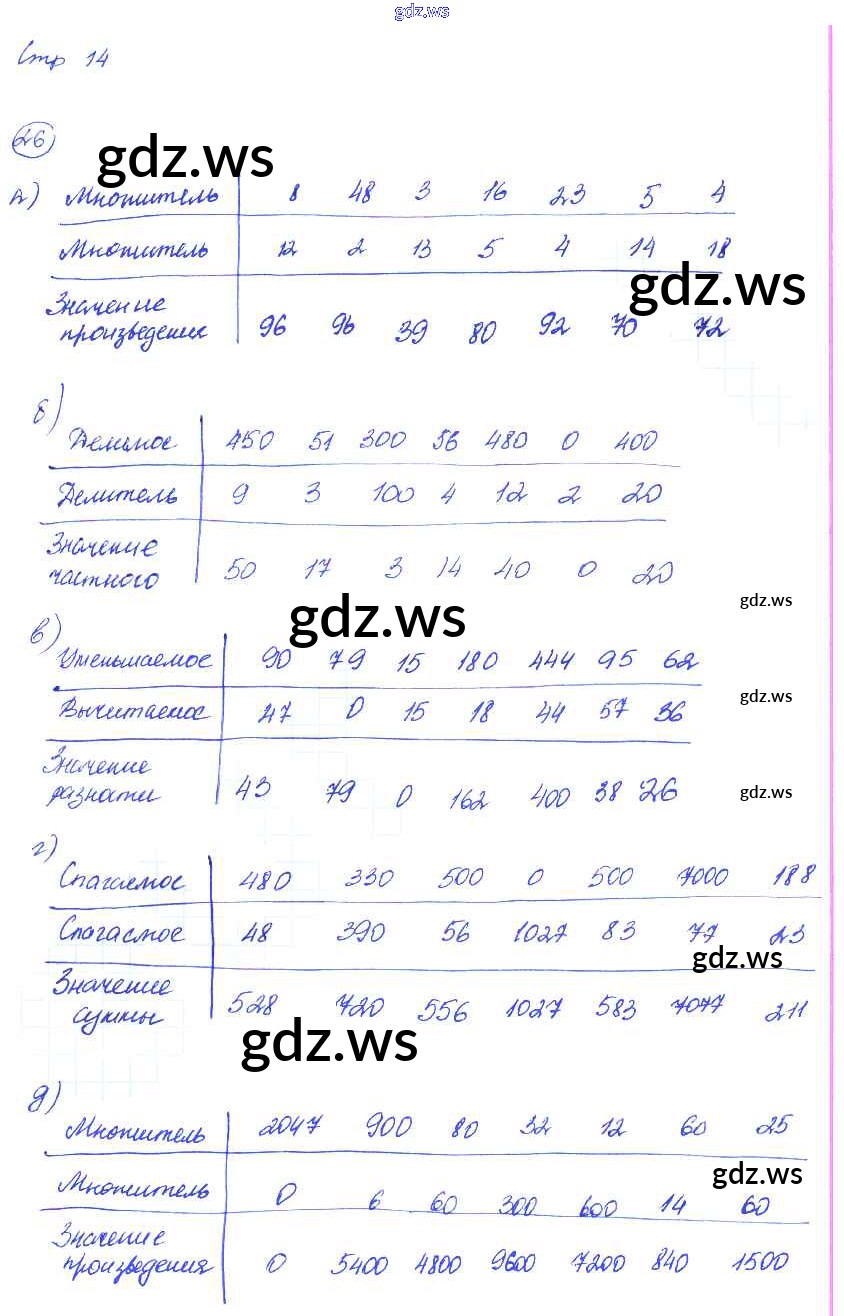 gdz.ws
Стр 14
26
gdz.ws
а) Множитель 8 48 3 16 23 5 4
Множитель 12 2 13 5 4 14 18
gdz.ws
Значение
произведения 96 96 39 80 92 70 72
б)
Делимое 450 51 300 56 480 0 400
Делитель 9 3 100 4 12 2 20
Значение
частного 50 17 3 14 40 0 20
gdz.ws
gdz.ws
в)
Уменьшаемое 90 79 15 180 444 95 62
gdz.ws
Вычитаемое 47 0 15 18 44 57 36
Значение
разности 43 79 0 162 400 38 26
gdz.ws
г)
Слагаемое 480 330 500 0 500 7000 188
Слагаемое 48 390 56 1027 83 77 23
gdz.ws
Значение
суммы 528 720 556 1027 583 7077 211
gdz.ws
д)
Множитель 2047 900 80 32 12 60 25
gdz.ws
Множитель 0 6 60 300 600 14 60
Значение
произведения 0 5400 4800 9600 7200 840 1500